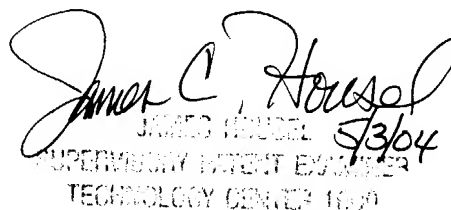 James C. Housel
5/3/04
JAMES HOUSEL
SUPERVISORY PATENT EXAMINER
TECHNOLOGY CENTER 1600